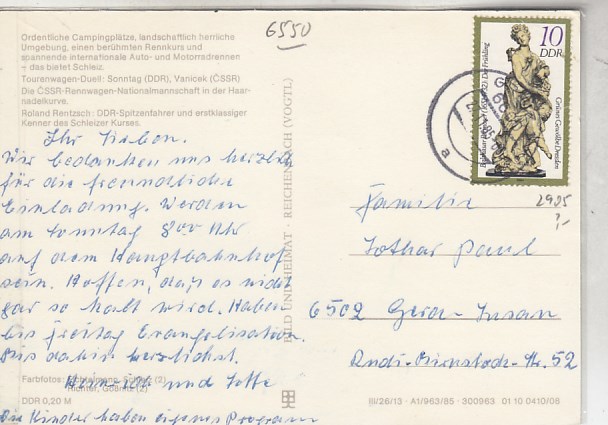 6550
Ordentliche Campingplätze, landschaftlich herrliche
Umgebung, einen berühmten Rennkurs und
spannende internationale Auto- und Motorradrennen
– das bietet Schleiz.
Tourenwagen-Duell: Sonntag (DDR), Vanicek (ČSSR)
Die ČSSR-Rennwagen-Nationalmannschaft in der Haar-
nadelkurve.
Roland Rentzsch: DDR-Spitzenfahrer und erstklassiger
Kenner des Schleizer Kurses.
Ihr Lieben.
Wir bedanken uns herzlich
für die freundliche
Einladung. Werden
am Sonntag 8 00 Uhr
auf dem Hauptbahnhof
sein. Hoffen, daß es nicht
gar so kalt wird. Haben
bis Freitag Evangelisation.
Bis dahin herzlichst.
und
Farbfotos:
Richter, (2)
DDR 0,20 M
Die Kinder haben eigenes Programm
BILD UND HEIMAT · REICHENBACH (VOGTL)
10
DDR
Der Frühling
Grünes Gewölbe Dresden
2985
?,-
Familie
Lothar Paul
6502 Gera-Lusan
Rudi- -Str. 52
III/26/13 · A1/963/85 · 300963 01 10 0410/08